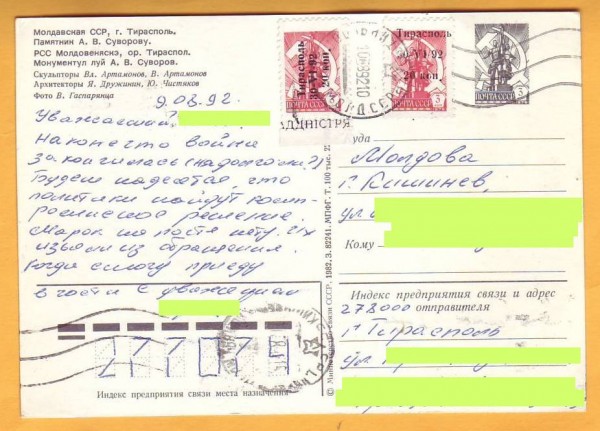 Молдавская ССР, г. Тирасполь.
Памятник А. В. Суворову.
РСС Молдовеняскэ, ор. Тираспол.
Монументул луй А. В. Суворов.
Скульпторы Вл. Артамонов, В. Артамонов
Архитекторы Я. Дружинин, Ю. Чистяков
Фото В. Гаспарянца
9.08.92.
Уважаемый
Наконец-то война
закончилась (надолго ли?)
Будем надеяться, что
политики найдут комп-
ромиссное решение.
Марок на почте нету. Их
изъяли из обращения.
Когда смогу приеду
в гости. С уважением
277071
Индекс предприятия связи места назначения
Тирасполь
30-VI-92
20 коп.
АДНIСТРЯ
Тирасполь
30-VI-92
20 коп.
ПОЧТА СССР 3
ПОЧТА СССР 3
© Министерство связи СССР, 1982, З. 82241. МПФГ. Т. 100 тыс.
уда
Молдова
г. Кишинев,
ул.
Кому
Индекс предприятия связи и адрес
отправителя
278000
г Тирасполь
ул.